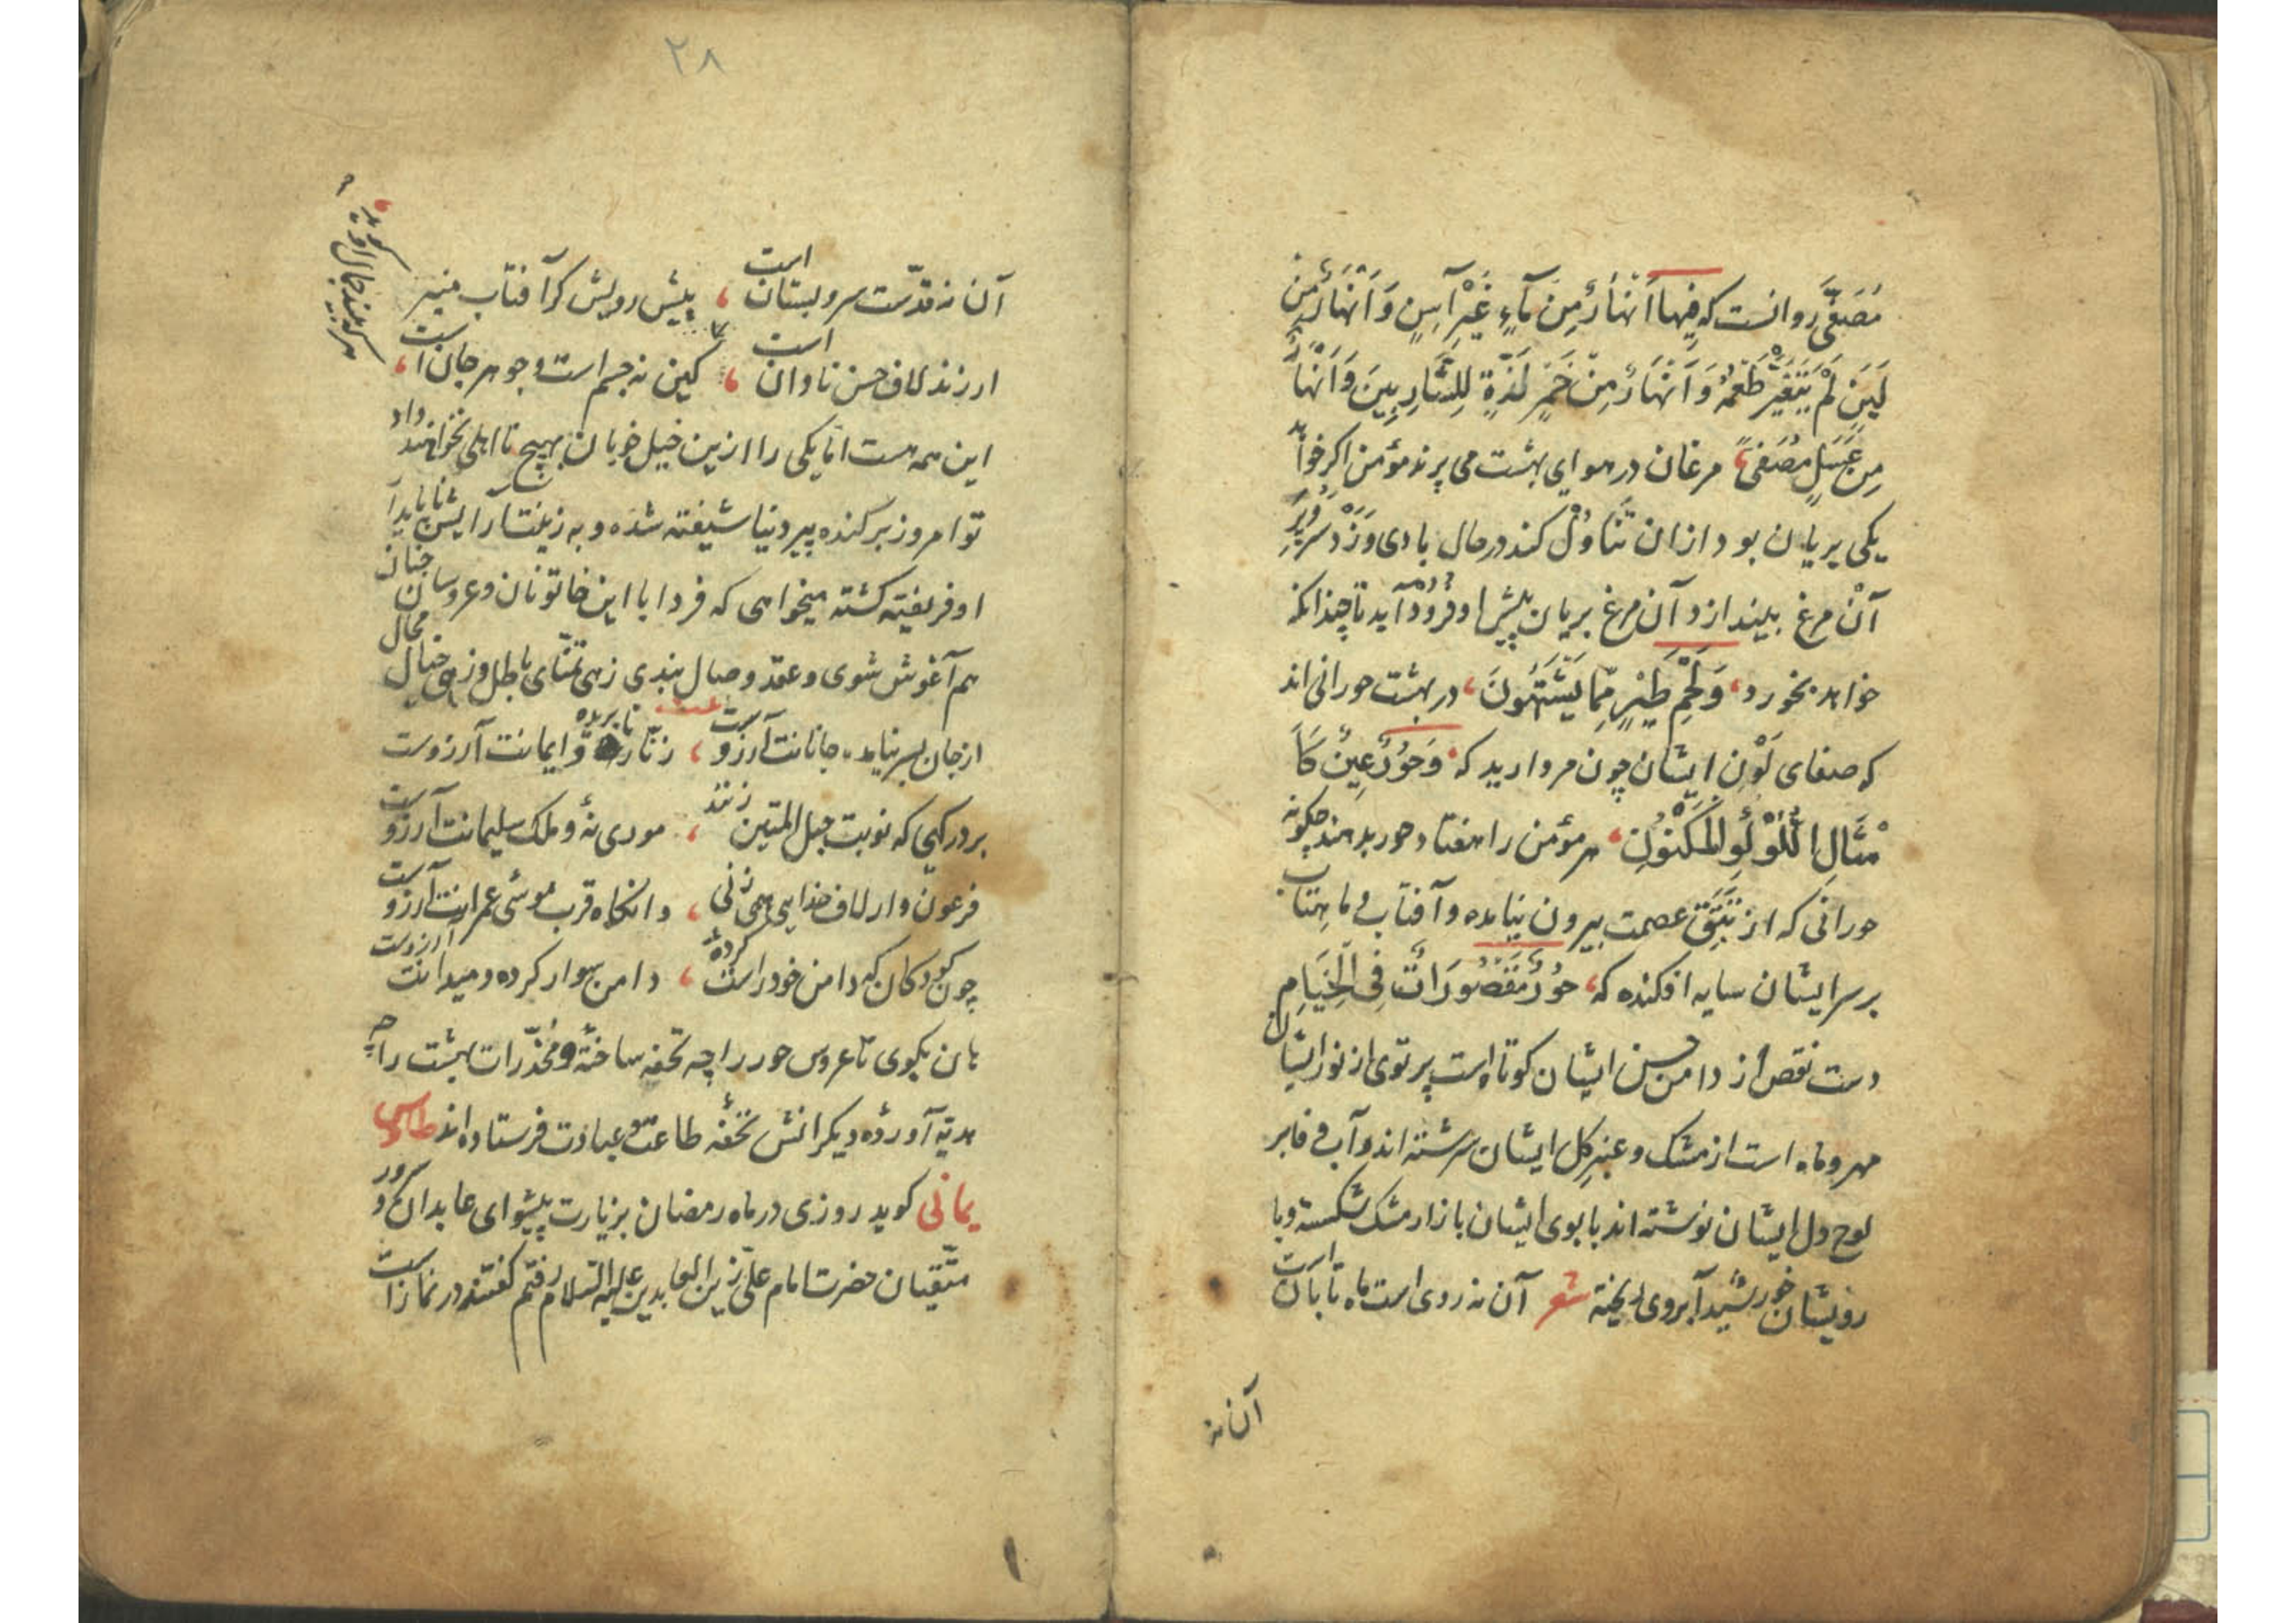 مُصَفًّی روانست که فِیهَا اَنْهَارٌ مِنْ مَآءٍ غَیْرِ آسِنٍ وَ اَنْهَارٌ مِنْ
لَبَنٍ لَمْ یَتَغَیَّرْ طَعْمُهُ وَ اَنْهَارٌ مِنْ خَمْرٍ لَذَّةٍ لِلشَّارِبِینَ وَ اَنْهَارٌ
مِنْ عَسَلٍ مُصَفًّی مرغان در هوای بهشت می پرند مؤمن اکر خواهد
یکی بریان بود ازان تَنَاوُلْ کند در حال بادی وَزَدْ سر و پَرِ
آنْ مرغ بیندازد آن مرغ بریان پیش او فُرُودْ آید تا چندانکه
خواهد بخورد وَ لَحْمِ طَیْرٍ مِمَّا یَشْتَهُونَ در بهشت حورانی اند
که صفای لَوْنِ ایشان چون مروارید که وَ حُورٌ عِینٌ کَاَ
مْثَالِ اللُّؤْلُؤِ الْمَکْنُونِ هر مؤمن را هفتاد حور بدهند چکونه
حورانی که از تُتُقِ عصمت بیرون نیامده و آفتاب و ماهتاب
بر سر ایشان سایه افکنده که حُورٌ مَقْصُورَاتٌ فِی الْخِیَامِ
دست نقص از دامن حسن ایشان کوتاه است پرتوی از نور ایشان
مهر و ماه است از مشک و عنبر کِل ایشان سرشته اند و آب
لوح دل ایشان نوشته اند با بوی ایشان بازار مشک شکسته و با
رویشان خورشید آبروی ریخته شعر آن نه روی است ماه تابان است
آن نه
۲۸
آن نه قدّست سرو بستان است پیش رویش کر آفتاب منیر
ار زند لاف حسن نادان است کین نه جسم است و جوهر جان است
هر که بیند جمال او کوید
این همه هست امّا یکی را ازین خیل خوبان بهیچ نااهلی نخواهند داد
تو امروز بر کنده پیر دنیا شیفته شده و به زینت و آرایش ناپایدار
او فریفته کشته میخواهی که فردا با این خاتونان و عروسان جنان
هم آغوش شوی و عقد وصال بندی زهی تمنّای باطل و زهی خیال محال
از جان بسر نیامده جانانت آرزوست زنّار نابریده و ایمانت آرزوست
بر درکهی که نوبت حبل المتین زنند موری نهٔ و ملک سلیمانت آرزوست
فرعون وار لاف خدایی همی زنی وانکاه قرب موسی عمرانت آرزوست
چون کودکان که دامن خود راست کردهٔ دامن سوار کرده و میدانت آرزوست
هان بکوی تا عروس حور را چه تحفه ساختهٔ و مُخدّرات بهشت را چه
هدیّه آوردهٔ دیکرانش تحفهٔ طاعت و عبادت فرستاده اند طاوس
یمانی کوید روزی در ماه رمضان بزیارت پیشوای عابدان و سرور
متّقیان حضرت امام علی زین العابدین علیه السّلام رفتم کفتند در نماز است